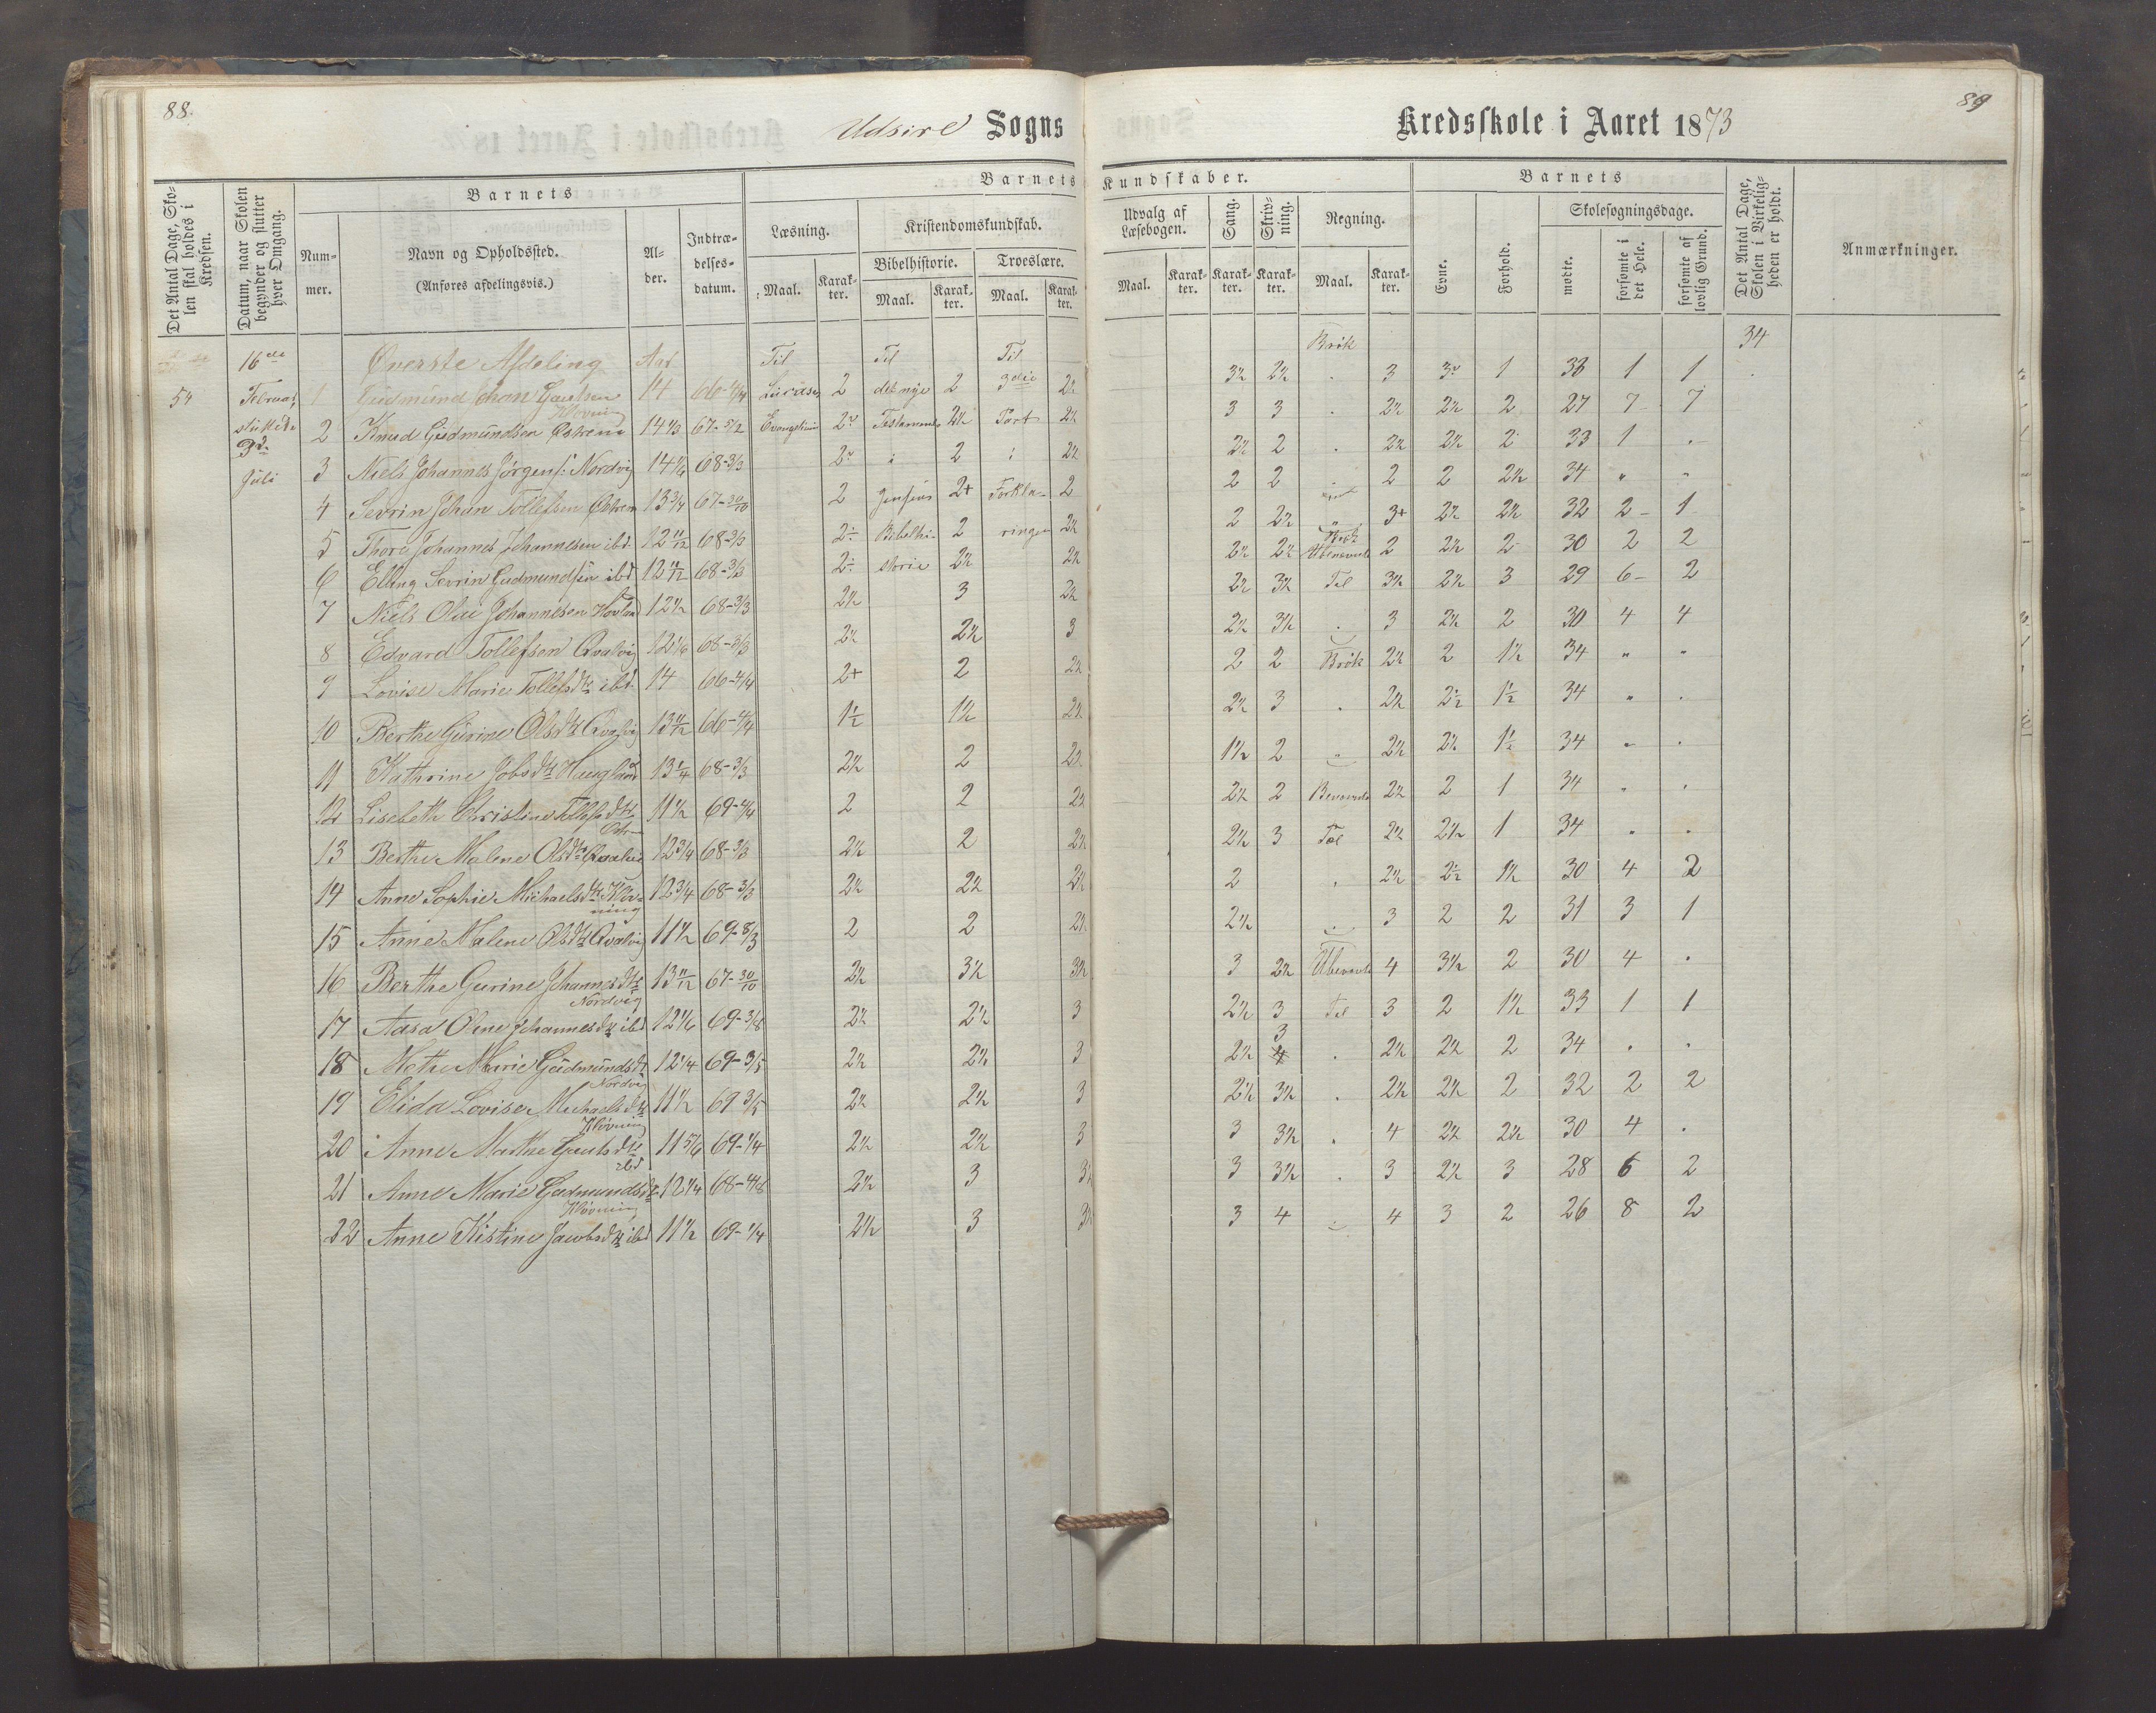 88.
Udsire Sogns
Kredsskole i Aaret 1873
89
Det Antal Dage, Skolen skal holdes i Kredsen.
Datum, naar Skolen begynder og slutter hver Omgang.
Barnets
Nummer.
Navn og Opholdssted.
(Anføres afdelingsvis.)
Alder.
Indtrædelsesdatum.
Barnets Kundskaber.
Læsning.
Maal.
Karakter.
Kristendomskundskab.
Bibelhistorie.
Maal.
Karakter.
Troeslære.
Maal.
Karakter.
Udvalg af Læsebogen.
Maal.
Karakter.
Sang.
Karakter.
Skrivning.
Karakter.
Regning.
Maal.
Karakter.
Barnets
Evne.
Forhold.
Skolesøgningsdage.
mødte.
forsømte i det Hele.
forsømte af lovlig Grund.
Det Antal Dage, Skolen i Virkeligheden er holdt.
Anmærkninger.
16de Øverste Afdeling Aar Til Til Til Brøk 34
54 Februar 1 Gudmund Johan Gautsen Kløvning 14 66-4/4 Lucases 2 det nye 2 3die 2½ 3½ 2½ . 3 3 1 33 1 1
sluttede 2 Knud Gudmundsen Østrem 14⅓ 67-5/2 Evangelium 2 Testamente 2½ Part 2½ 3 3 . 2½ 2½ 2 27 7 7
3d. Juli 3 Niels Johannes Jørgens: Nordvig 14 1/6 68-3/3 2 2 2½ 2½ 2 . 2½ 2½ 2 33 1 .
4 Sevrin Johan Tollefsen Østrem 13¾ 67-30/10 2 Jensens 2+ Forkla- 2 2 2 . 2 2 2½ 34 " "
5 Thore Johannes Johannesen ibd 12 11/12 68-3/3 2 Bibelhi- 2 ringen 2½ 2 2½ " 3+ 2½ 2½ 32 2 1
6 Elling Sevrin Gudmundsen ibd 12 11/12 68-3/3 2 storie 2½ 2½ 2½ 2½ 2 2½ 2 30 2 2
7 Niels Olai Johannesen Hovland 12½ 68-3/3 2½ 3 2½ 2½ 3½ Tal 3½ 2½ 3 29 6 2
8 Edvard Tollefsen Qvalvig 12 1/6 68-3/3 2½ 2½ 3 2½ 3½ . 3 3½ 2 30 4 4
9 Lovise Marie Tollefsdtr ibd. 14 66-4/4 2+ 2 2½ 2 2 Brøk 2½ 2 1½ 34 " "
10 Berthe Gurine Olsdtr Qvalvig 13 11/12 66-4/4 1½ 1½ 2½ 2½ 3 . 2½ 2½ 1½ 34 " .
11 Kathrine Jobsdtr Haugland 13¼ 68-3/3 2½ 2 2½ 1½ 2 " 2½ 2½ 1½ 34 " .
12 Lisebeth Christine Tollefsdtr 11½ 69-4/4 2 2 2½ 2½ 2 2½ 2 1 34 " .
13 Berthe Malene Olsdtr Qvalvig 12¾ 68-3/3 2½ 2 2½ 2½ 3 Tal 2½ 2½ 1 34 " .
14 Anne Sophie Michaelsdtr Kløvning 12¾ 68-3/3 2½ 2½ 3½ 2 . 2½ 2½ 1½ 30 4 2
15 Anne Malene Olsdtr Qvalvig 11½ 69-8/3 2 2 2½ 2½ . 3 2 2 31 3 1
16 Berthe Gurine Johannesdtr Nordvig 13 11/12 67-30/10 2½ 3½ 3½ 3 2½ 4 3½ 2 30 4 .
17 Aasa Oline Johannesdtr ibd 12 1/6 69-3/8 2½ 2½ 3 2½ 3 Tal 3 2 1½ 33 1 1
18 Methe Marie Gudmundsdtr Nordvig 12¼ 69-3/5 2½ 2½ 3 2½ 3 . 2½ 2½ 2 34 . .
19 Elida Lovise Michaelsdtr Kløvning 11½ 69 3/5 2½ 2½ 3 2½ 3½ . 2½ 2½ 2 32 2 2
20 Anne Marthe Gautsdtr ibd 11 5/6 69-1/4 2½ 2½ 3 3 3½ . 4 2½ 2½ 30 4 .
21 Anne Marie Gudmundsdtr Kløvning 12¼ 68-4/8 2½ 3 3½ 3 3½ . 3 2½ 3 28 6 2
22 Anne Kistine Jacobsdtr ibd 11½ 69-1/4 2½ 3 3½ 3 4 . 4 3 2 26 8 2